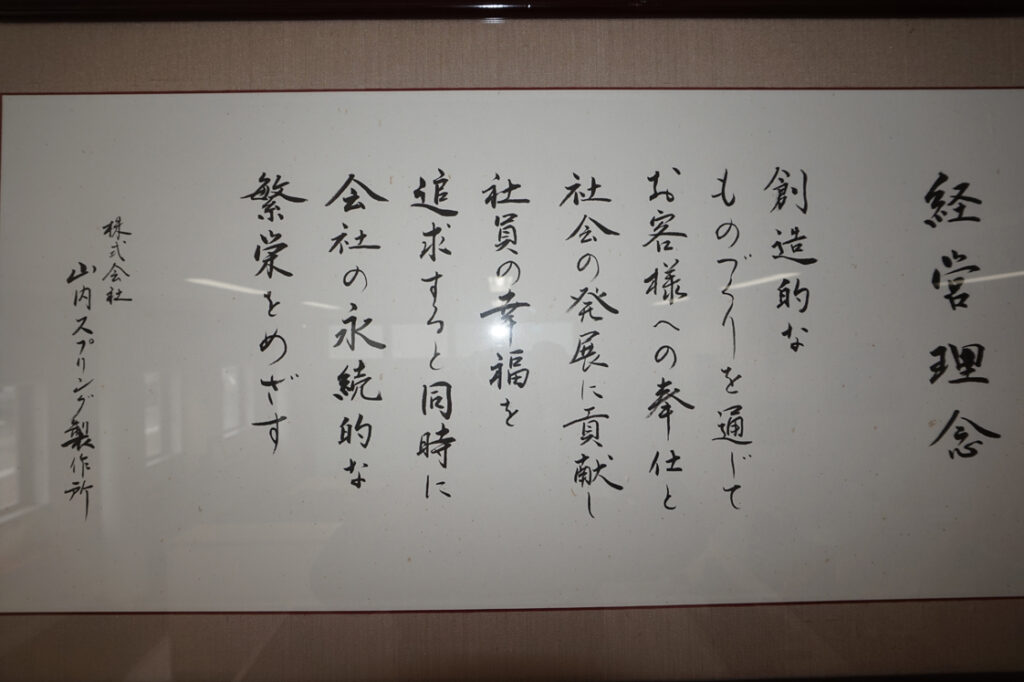 経営理念
創造的な
ものづくりを通じて
お客様への奉仕と
社会の発展に貢献し
社員の幸福を
追求すると同時に
会社の永続的な
繁栄をめざす
株式会社
山内スプリング製作所